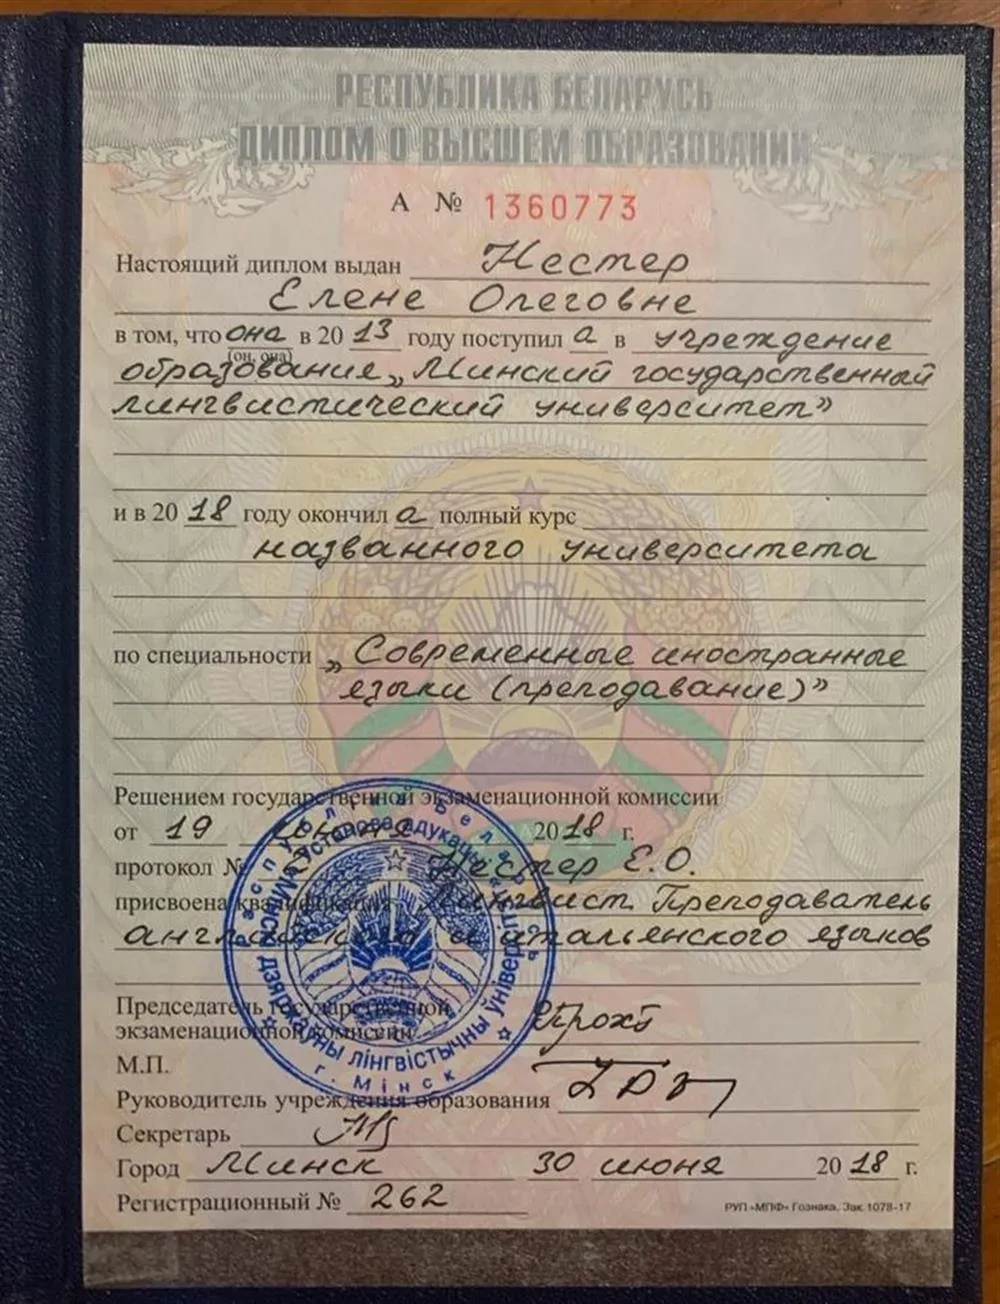 РЕСПУБЛИКА БЕЛАРУСЬ
ДИПЛОМ О ВЫСШЕМ ОБРАЗОВАНИИ
А № 1360773
Настоящий диплом выдан Нестер
Елене Олеговне
в том, что она в 2013 году поступила в учреждение
(он, она)
образования „Минский государственный
лингвистический университет”
и в 2018 году окончила полный курс
названного университета
по специальности „Современные иностранные
языки (преподавание)”
Решением государственной экзаменационной комиссии
от 19 июня 2018 г.
протокол № Нестер Е.О.
присвоена квалификация Лингвист. Преподаватель
английского и итальянского языков
Председатель государственной
экзаменационной комиссии
М.П.
Руководитель учреждения образования
Секретарь
Город Минск 30 июня 2018 г.
Регистрационный № 262
РУП «МПФ» Гознака. Зак. 1078-17
Рэспубліка Беларусь
Установа адукацыі «Мінскі дзяржаўны лінгвістычны ўніверсітэт»
г. Мінск